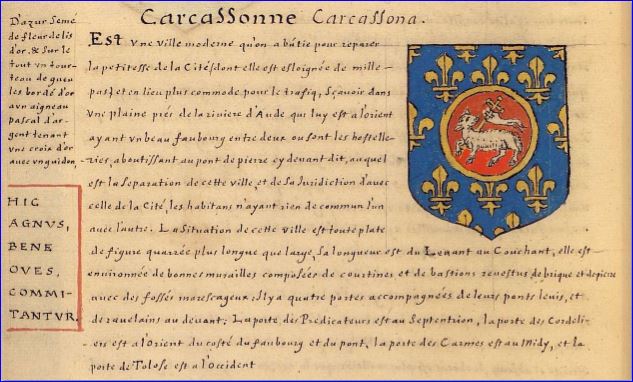 CarcaSSonne CarcaSSona.
D'azur Semé
de fleur de lis
d'or, & Sur le
tout vn tour-
teau de gueu
les bordé d'or
avn aigneau
pascal d'ar-
gent tenant
vne croix d'or
auec vn guidon
HIC
AGNVS,
BENE
OVES,
COMMI-
TANTVR.
Est vne ville moderne qu'on a bâtie pour reparer
la petitesse de la Cité, dont elle est esloignée de mille
pas, et en lieu plus commode pour le trafiq, Sçauoir dans
vne plaine prés de la riuiere d'Aude qui luy est a l'orient
ayant vn beau faubourg entre deux ou sont les hostelle-
ries, aboutissant au pont de pierre cy deuant dit, auquel
est la Separation de cette ville et de Sa Iuridiction d'auec
celle de la Cité, les habitans n'ayant rien de commun l'un
auec l'autre. La Situation de cette ville est toute plate
de figure quarrée plus longue que large, Sa longueur est du Leuant au Couchant, elle est
enuironnée de bonnes murailles composées de courtines et de bastions reuestus de brique et de pierre
auec des fossés marescageux: il y a quatre portes accompagnées de leurs ponts leuis, et
de rauelains au deuant; La porte des Predicateurs est au Septentrion, la porte des Cordeli-
ers est a l'Orient du costé du faubourg et du pont, la porte des Carmes est au Midy, et la
porte de Tolose est a l'Occident